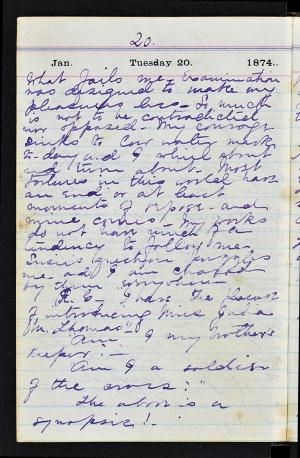 20.
Jan. Tuesday 20. 1874.
What fails me - Examination
was designed to make my
pleasures less - So much
is not to be contradicted
nor opposed - My courage
sinks to low water mark
to-day and I whirl about
and turn about. Most
tortures in this world have
an end or at least
moments of repose - and
mine comes - My works
do not have much of a
tendency to follow me -
Susie's question puzzles
me and I am chased
by them everywhere
the pleasure
of introducing Miss
Mr. Thomas"
Am I my brother's
keeper? -
"Am I a soldier
of the cross?"
The above is a
synopsis! -